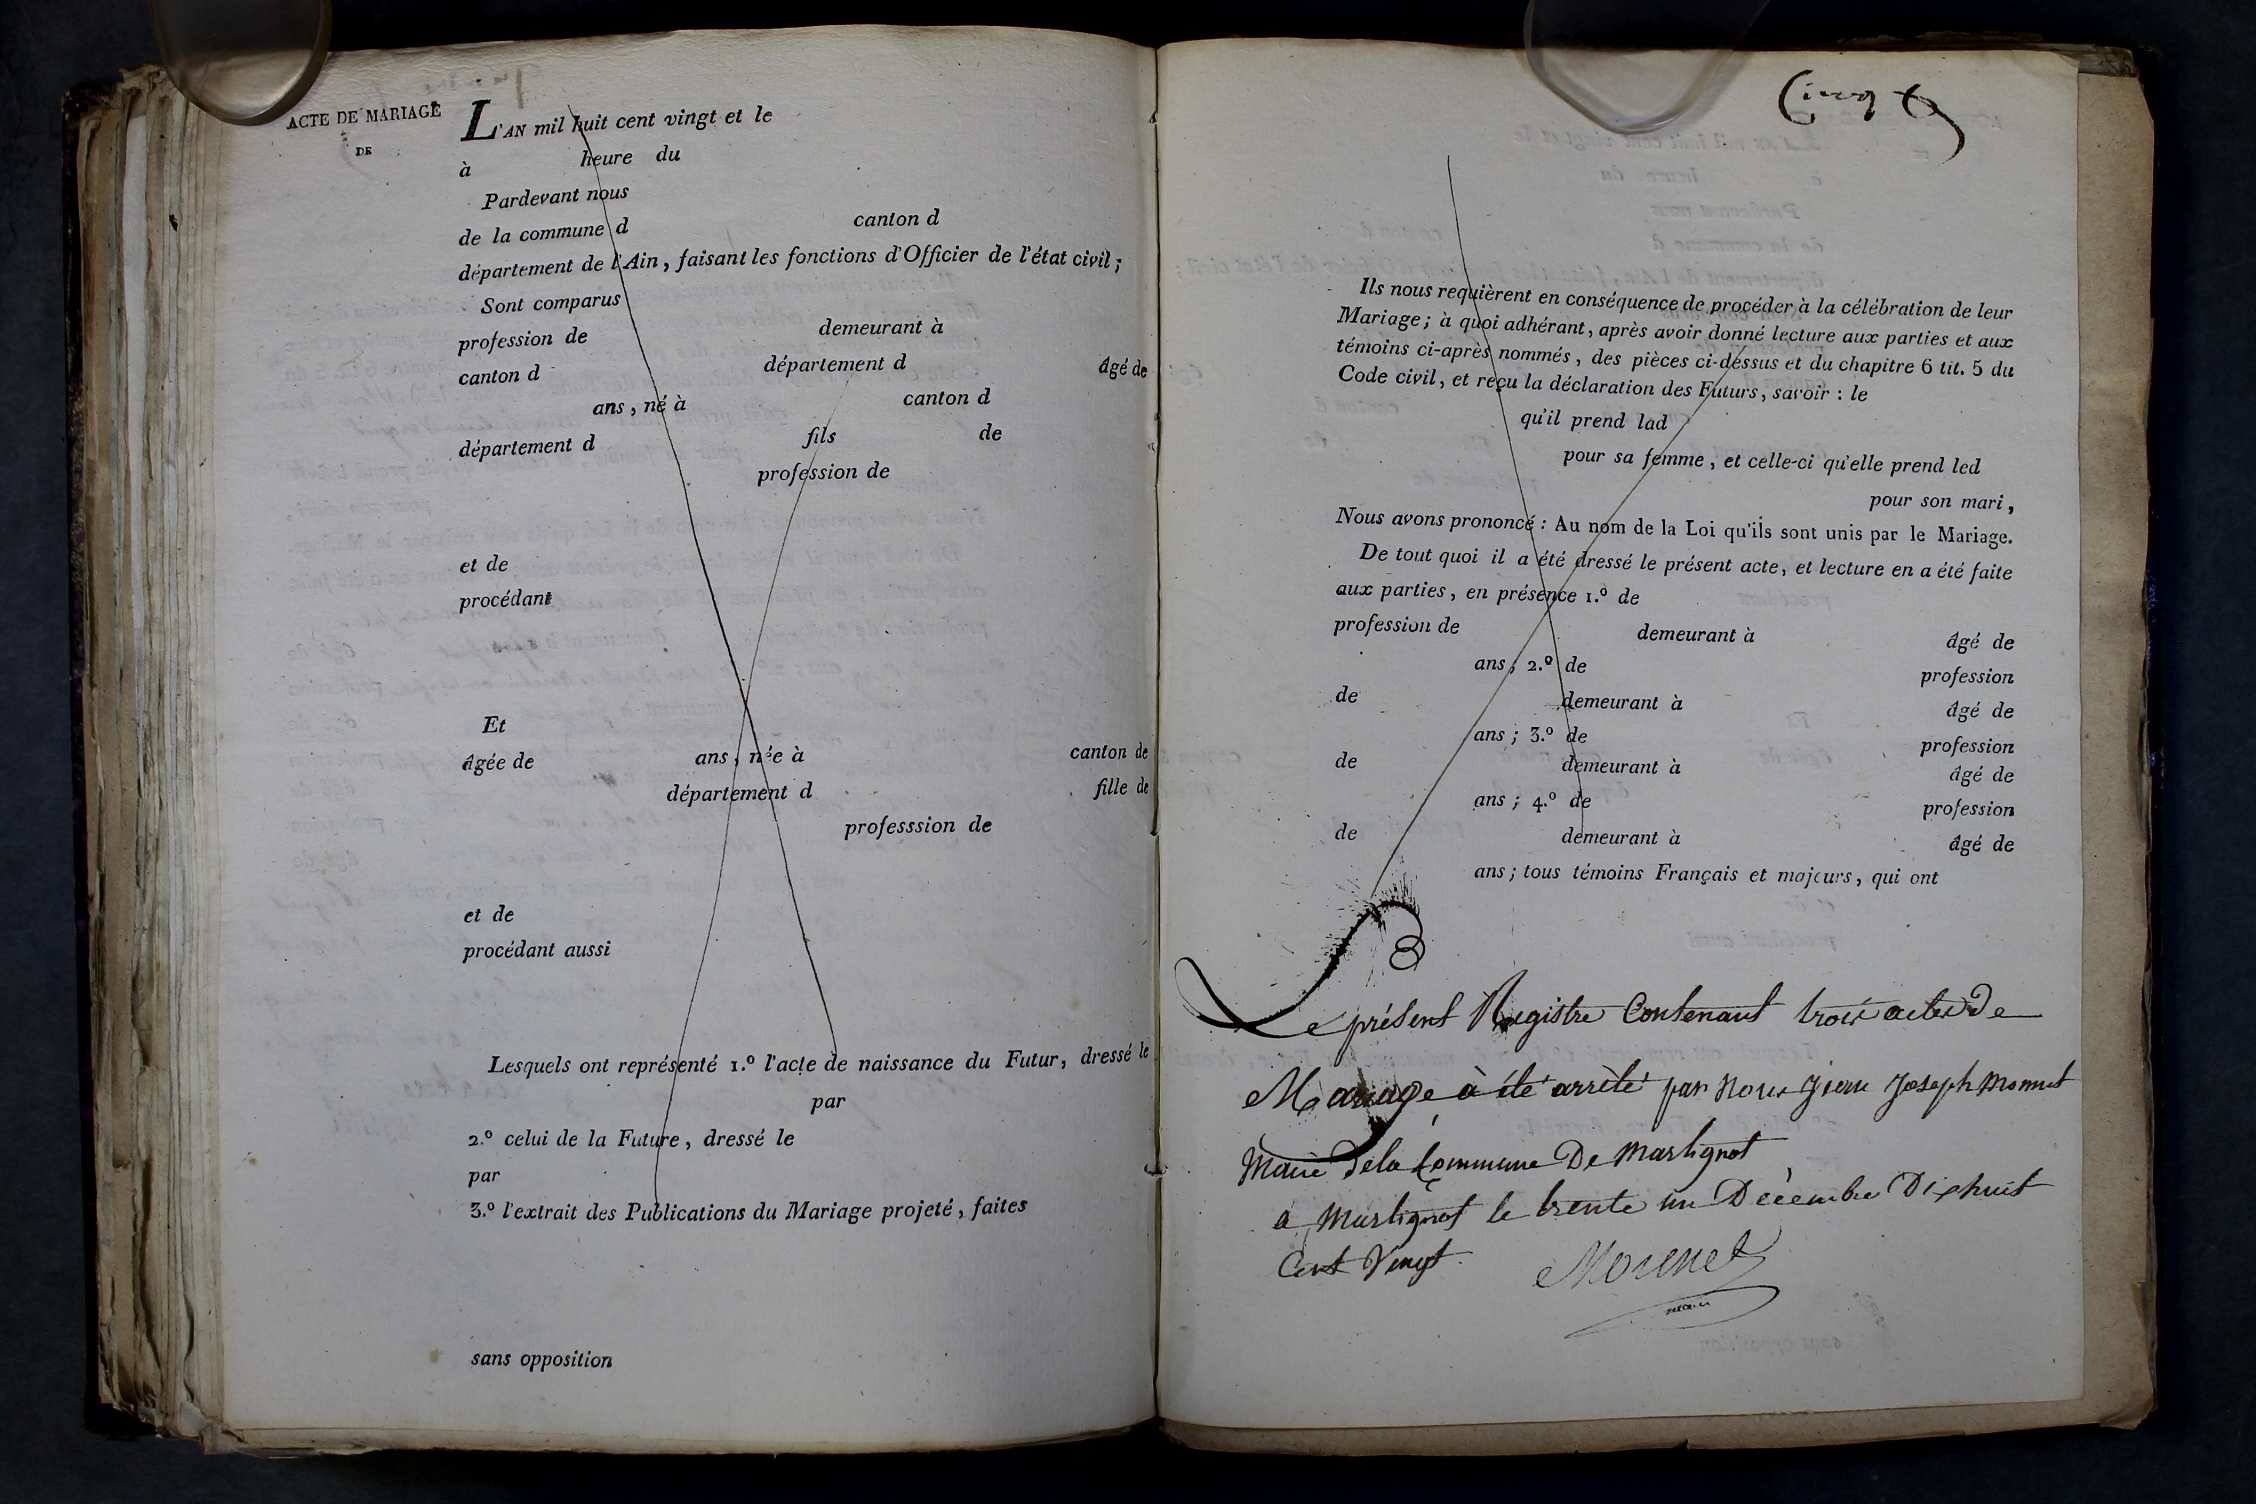 ACTE DE MARIAGE
DE
L'AN mil huit cent vingt et le
à heure du
Pardevant nous
de la commune d canton d
département de l'Ain, faisant les fonctions d'Officier de l'état civil;
Sont comparus
profession de demeurant à
canton d département d âgé de
ans, né à canton d
département d fils de
profession de
et de
procédant
Et
âgée de ans, née à canton de
département d fille de
professsion de
et de
procédant aussi
Lesquels ont représenté 1.º l'acte de naissance du Futur, dressé le
par
2.º celui de la Future, dressé le
par
3.º l'extrait des Publications du Mariage projeté, faites
sans opposition
Ils nous requièrent en conséquence de procéder à la célébration de leur
Mariage; à quoi adhérant, après avoir donné lecture aux parties et aux
témoins ci-après nommés, des pièces ci-dessus et du chapitre 6 tit. 5 du
Code civil, et reçu la déclaration des Futurs, savoir : le
qu'il prend lad
pour sa femme, et celle-ci qu'elle prend led
pour son mari,
Nous avons prononcé : Au nom de la Loi qu'ils sont unis par le Mariage.
De tout quoi il a été dressé le présent acte, et lecture en a été faite
aux parties, en présence 1.º de
profession de demeurant à âgé de
ans; 2.º de profession
de demeurant à âgé de
ans; 3.º de profession
de demeurant à âgé de
ans; 4.º de profession
de demeurant à âgé de
ans; tous témoins Français et majeurs, qui ont
Le présent Registre Contenant trois actes De
Mariage à été arrêté par Nous Jean Joseph
Maire dela Commune De Martignat
a Martignat le trente un Décembre Dixhuit
Cent Vingt.
maire